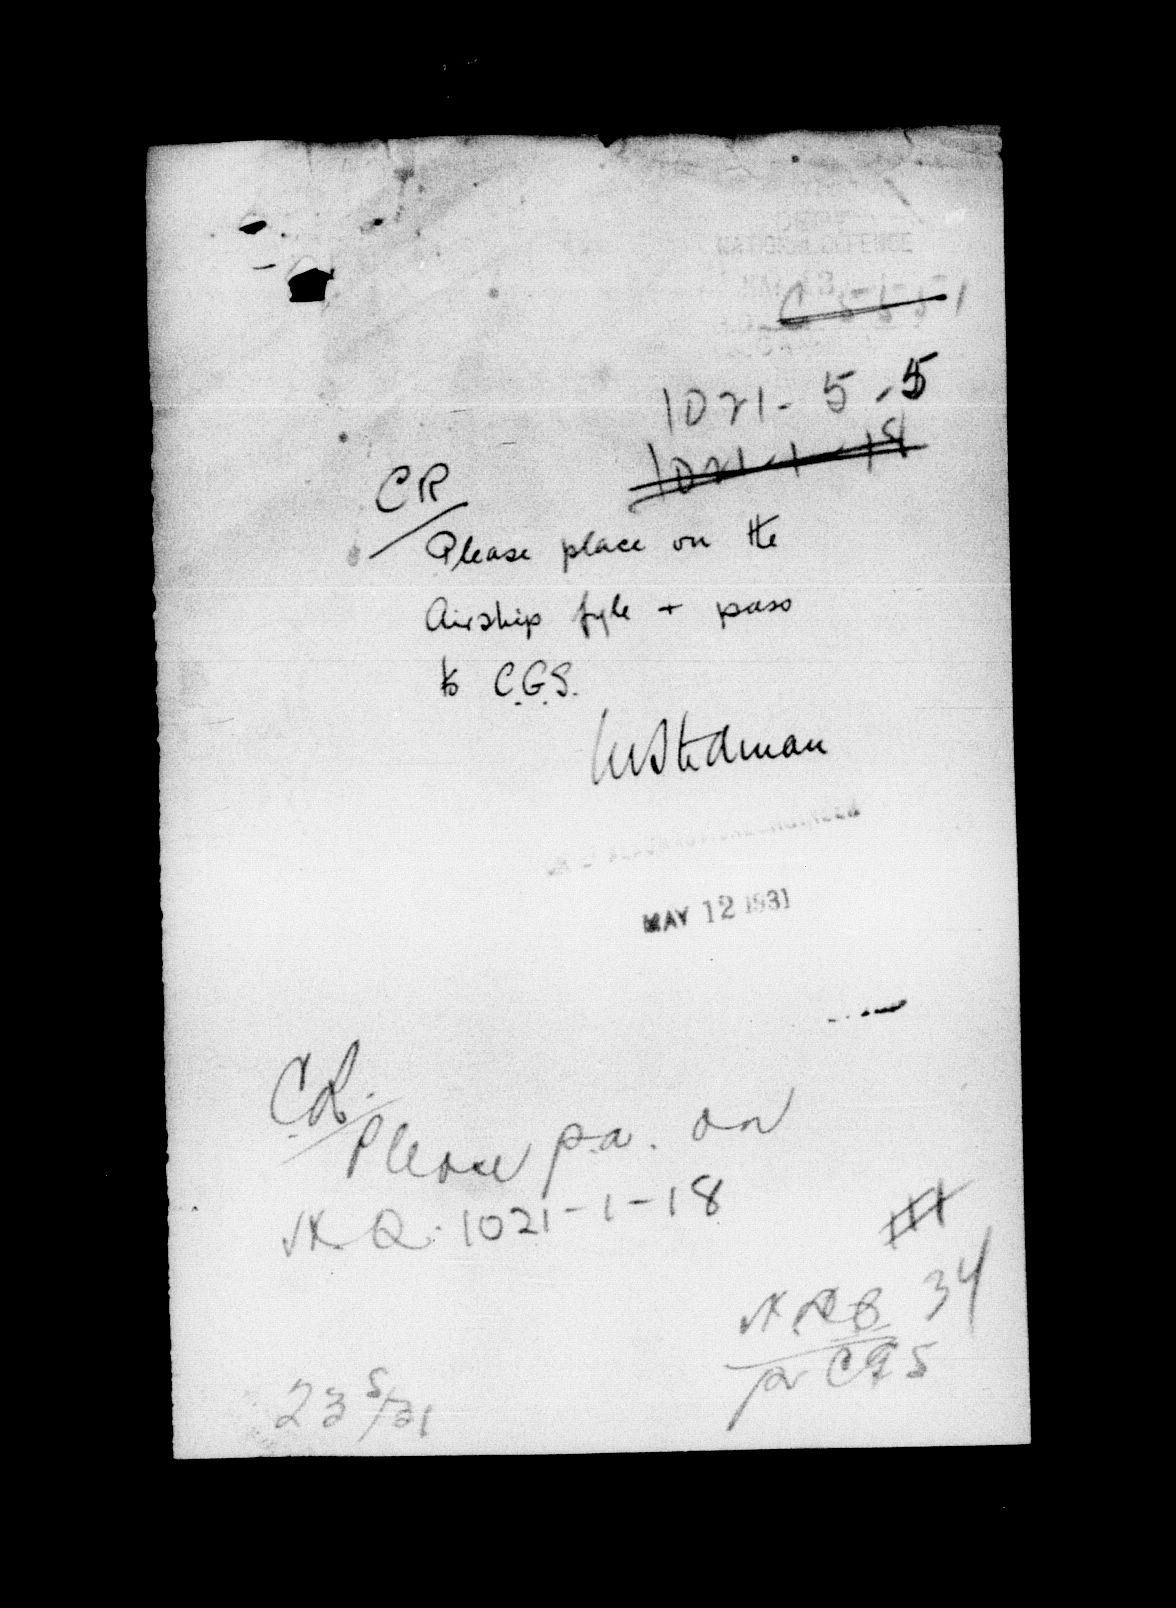 DEPT
NATIONAL DEFENCE
1021-5-5
1021-1-18
CR
Please place on the
Airship fyle + pass
to C.G.S.
MAY 12 1931
C.R.
Please p.a. on
H.Q. 1021-1-18
34
for CGS
23 5/31